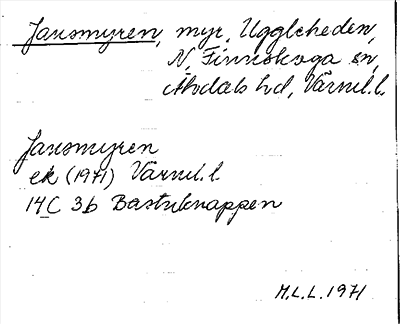 Jansmyren, myr, Uggleheden,
N. Finnskoga sn,
Älvdals hd, Värml. l.
Jansmyren
ek (1971) Värml. l.
14C 3b Bastuknappen
M.L.L. 1971